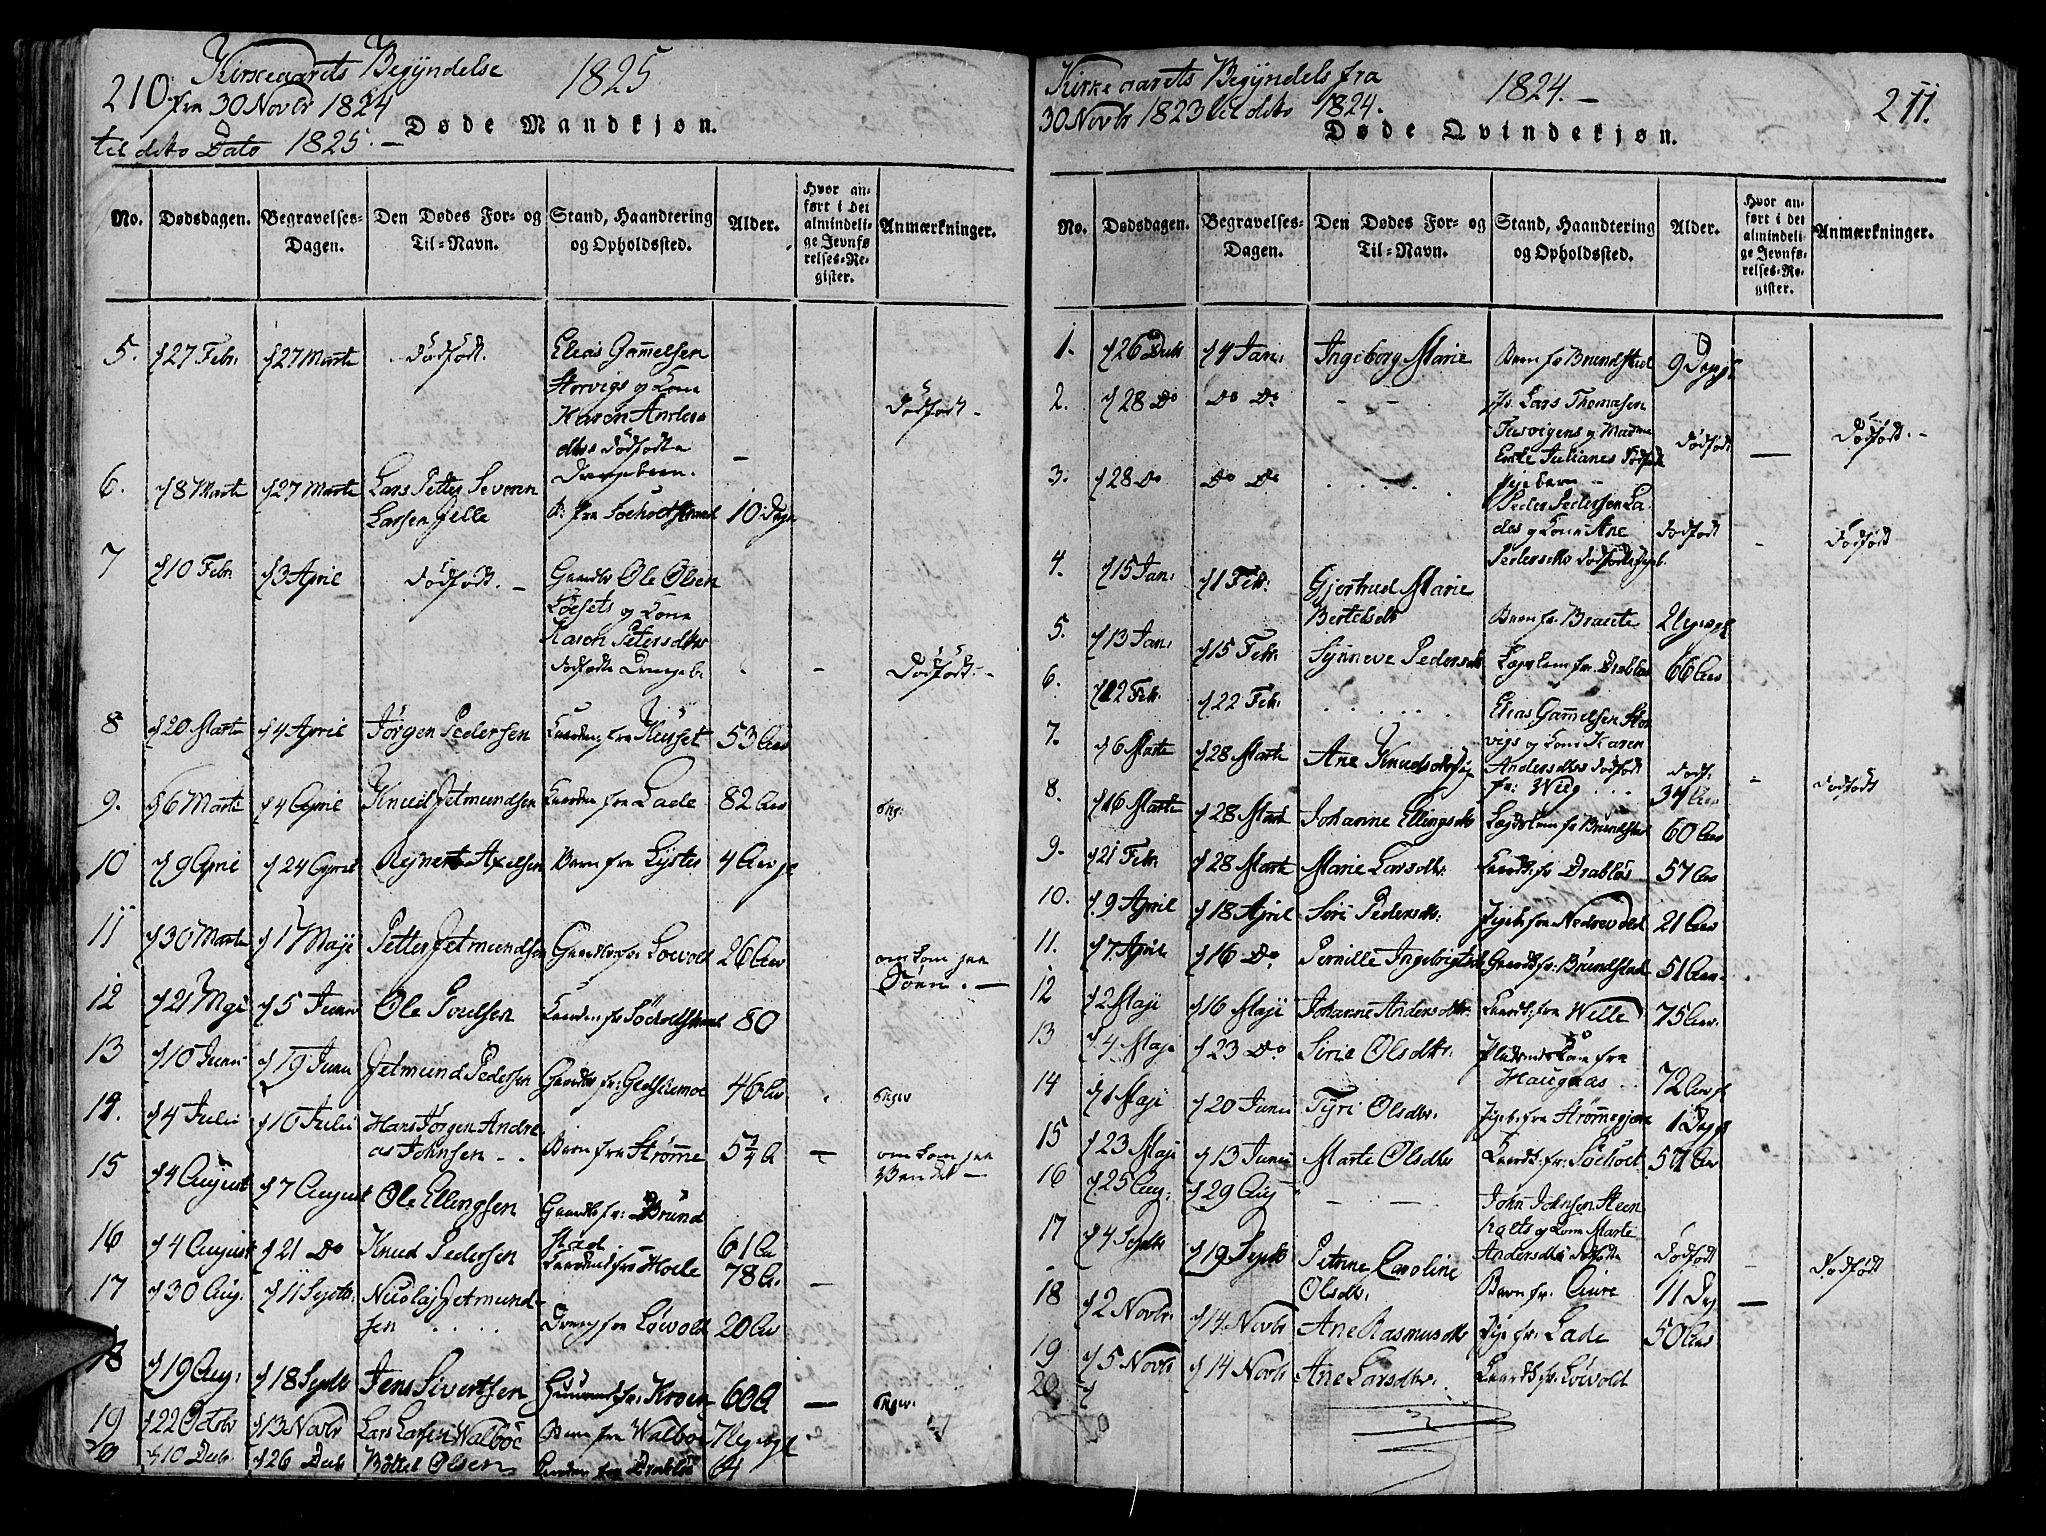 210
Kirkeaarets Begÿndelse
fra 30 Novbr 1824
til dito Dato 1825. —
1825
Døde Mandkjøn.
No. Dødsdagen. Begravelses-Dagen. Den Dødes For- og Til-Navn. Stand, Haandtering og Opholdssted. Alder. Hvor anført i det almindelige Jevnførelses-Register. Anmærkninger.
5. d 27 Febr. d 27 Marte Dødfødt. Elias Gam̄elsen
Storvigs og Kone
Karen Anders
dtrs dødfødte
Drengebarn. — Dødfødt -
6. d 8 Marte d 27 Marte Lars Petter Severin
Larsen Jelle B: fra Soeholtstrand 10 Dage
7 d 10 Febr d 3 April Dødfødt. — Gaardbr Ole Olsen
Löesets og Kone
Karen Petersdtter
dødfødte Drengeb. - Dødfødt. -
8 d 20 Marte d 4 April Jörgen Pedersen fra Huset 53 Aar
9. d 6 Marte d 4 April Knud Jetmundsen fra Lade 82 Aar
10 d 9 April d 24 April Rejnert Axelsen Barn fra Lyster 4 Aar
11 d 30 Marte d 1 Maji Petter Jetmundsen Gaardbr fr. Lowold 26 Aar omkom paa
Söen. —
12 d 21 Maji d 5 Junii Ole Poulsen fr Söeholtstrand 80
13 d 10 Junii d 19 Junii Jetmund Pedersen Gaardbr fr: Geithemoe 46 Aar
14. d 4 Julii d 10 Julii Hans Jörgen Andre-
as Johnsen - - Barn fra Strömme 5¼ A — omkom paa
Vandet —
15 d 4 August d 7 August Ole Ellingsen Gaardbr fr: Brund
stad 61 A
16 d 4 August d 21 Do Knud Pedersen fra Hole 78 A. —
17 d 30 Aug. d 11 Septbr. Nicolaj Jetmund-
sen Dreng fra Löwold 20 Aar
18 d 19 Aug. d 18 Septbr Jens Sivertsen fr. Kroen 60 A —
19 d 22 Octobr d 13 Novbr Lars Larsen Walböe Barn fra Walböe 7
20 d 10 Decb d 26 Decb Bottel Olsen fra Drablös 64
Kirkeaarets Begÿndels fra
30 Novbr 1823 til dito 1824.
1824. —
211.
Døde Qvindekjøn.
No. Dødsdagen. Begravelses-Dagen. Den Dødes For- og Til-Navn. Stand, Haandtering og Opholdssted. Alder. Hvor anført i det almindelige Jevnførelses-Register. Anmærkninger.
1. d 26 Decbr d 4 Jan: Ingeborg Marie Barn fr Brundstad 9 Dage
2. d 28 Do Do Do - - Hr. Lars Thomasen
og Madme
Julianes dødfødte
Pigebarn — Dødfødt — Dødfødt. -
3. d 28 Do Do Do . . . . . Peder Pedersen La-
des og Kone Ane
Pedersdtrs dødfødte Pigeb. Dødfødt - Dødfødt
4. d 15 Jan: d 1 Febr. Gjertrud Marie
Bertelsdtr Barn fr. Braute
5. d 13 Jan: d 15 Febr. Synneve Pedersdtr fr. Drablös 66 Aar
6. d 12 Febr. d 22 Febr. . . . . . Elias Gam̄elsen Stor
vigs og Kone Karen
Andersdtrs dødfødt Dødf. - Dødfødt
7. d 6 Marte d 28 Marte Ane Knudsdtr fr: Wiig . . . 34 Aar
8. d 16 Marte d 28 Marte Johanne Ellingsdtr fr Brundstad 60 Aar
9. d 21 Febr. d 28 Marte Marie Larsdtr. fr Drablös 57 Aar
10. d 9 April d 18 April Siri Pedersdtr. Pige fra Nedrevold 21 Aar
11. d 7 April d 16 Do Pernille Ingebrigtsdtr Gaardk fr: Brundstad 51 Aar.
12 d 2 Maji d 16 Maji Johanne Andersdtr. fra Welle 75 Aar.
13 d 4 Maji d 23 Do Sirie Olsdtr. fra
Haugnæs . . 72 Aar
14 d 1 Maji d 20 Junii Tyri Olsdtr. fra Strömmegjære 1 Dag
15 d 23 Maji d 13 Junii Marte Olsdtr fr: Soeholt 57 Aar
16 d 25 Aug. d 29 Aug — — John Johnsen Steen
og Kone Marte
Andersdtrs dødfødte Dødfødt - Dødfødt
17 d 4 Septbr d 19 Septb Petrine Caroline
Olsdtr. Barn fr. Aure 11 Dag —
18 d 2 Novbr. d 14 Novbr Ane Rasmusdtr Pige fr: Lade 50 Aar
19 d 5 Novbr d 14 Novbr Ane Larsdtr. fr. Löwold
20 d